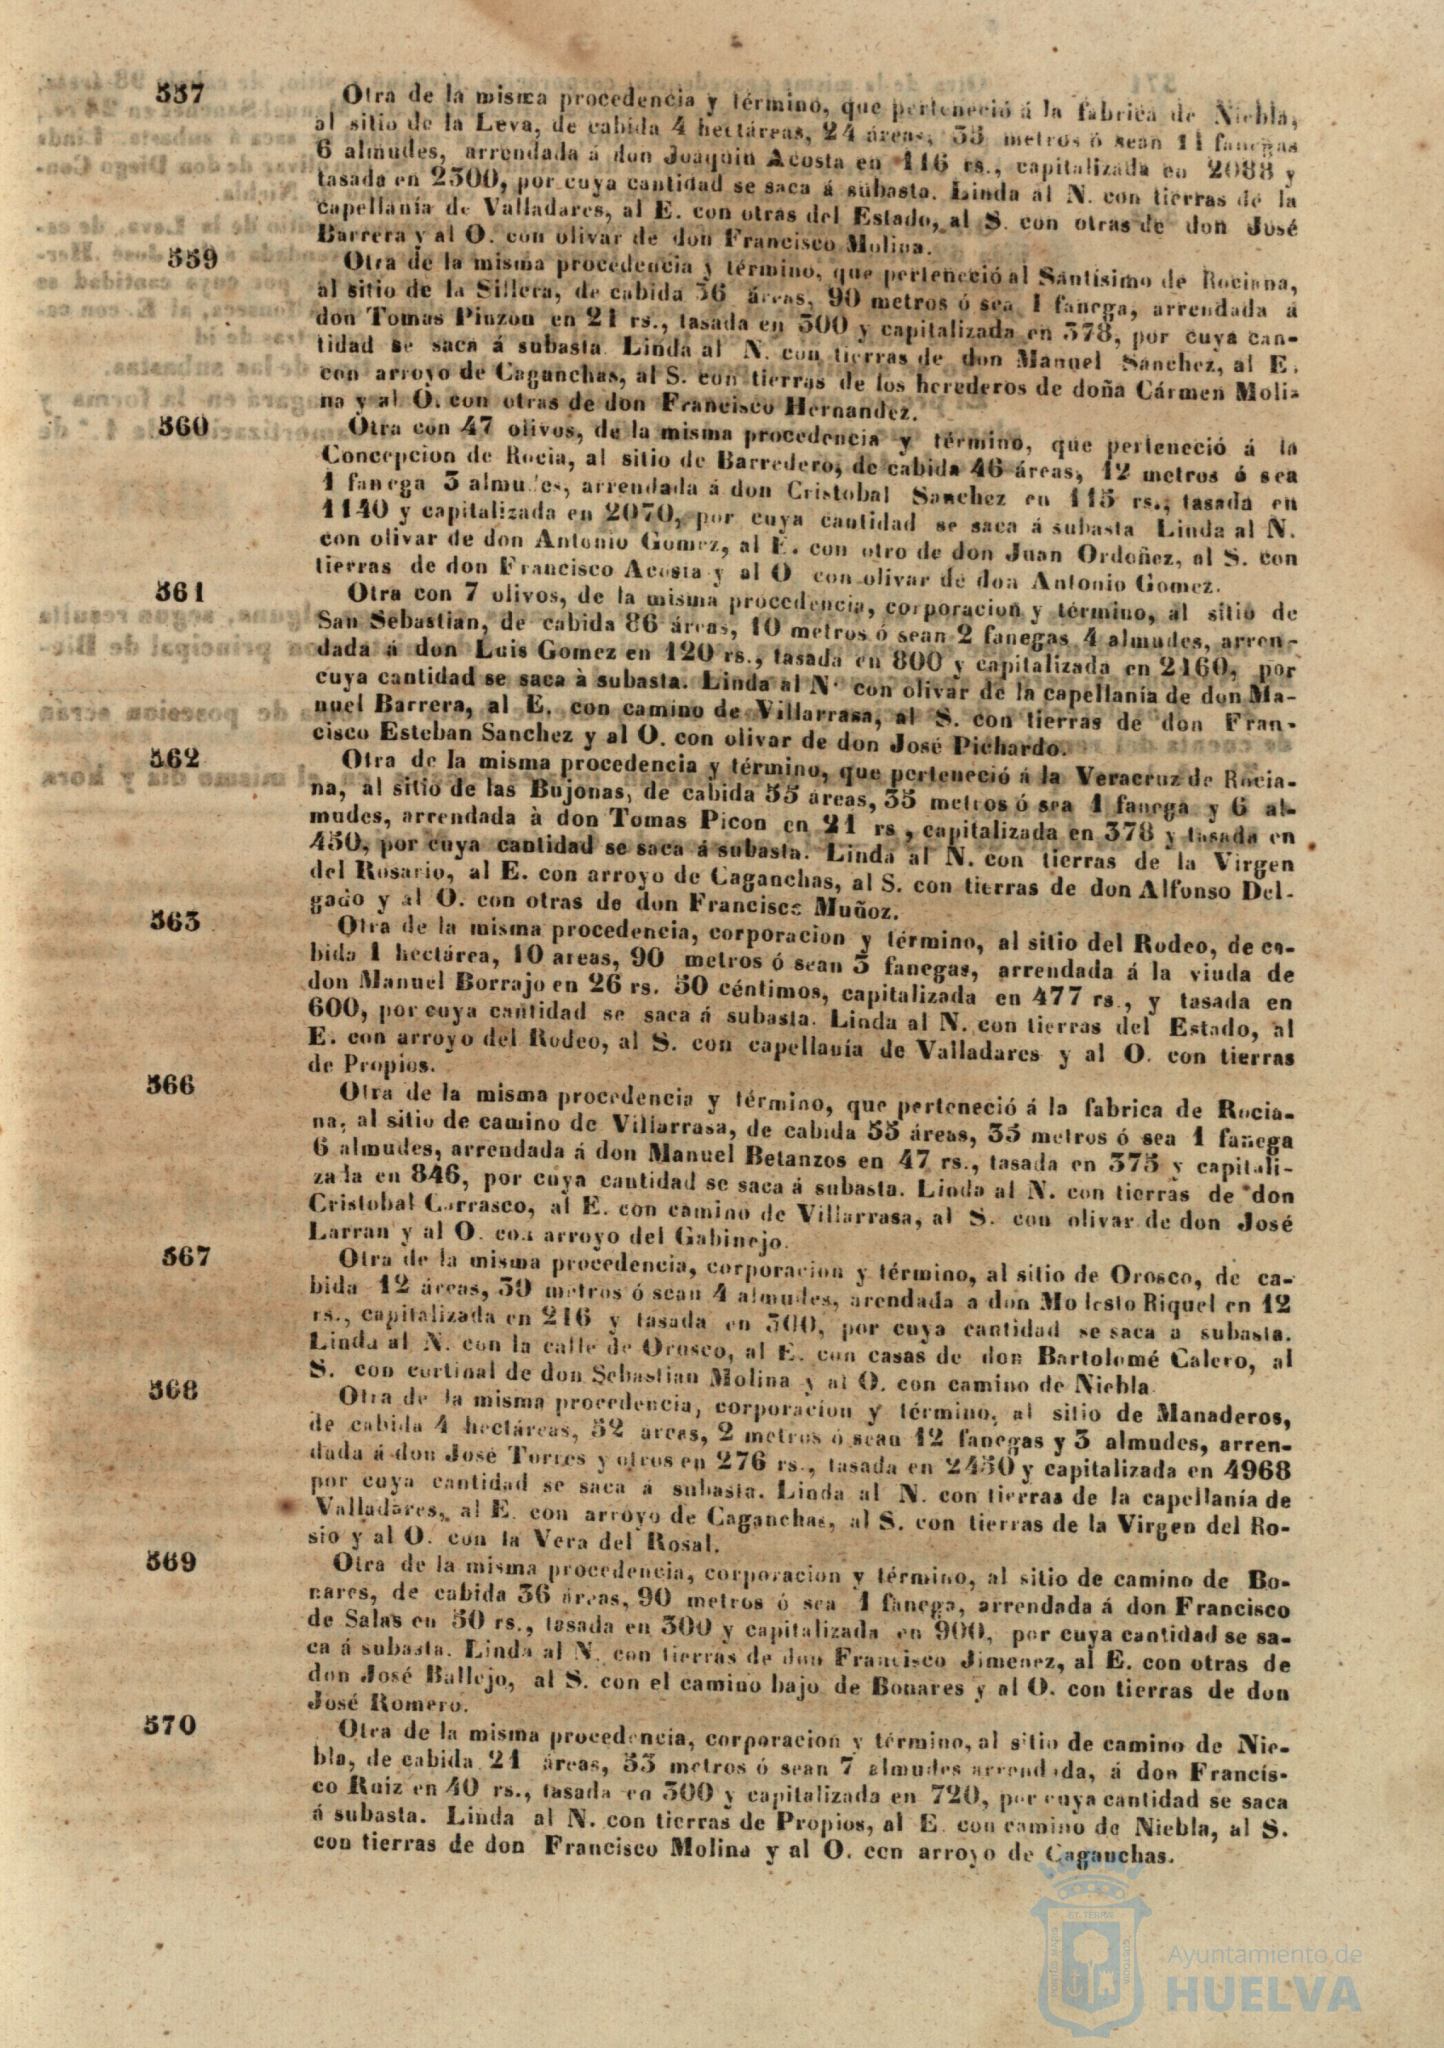 557 Otra de la misma procedencia y término, que perteneció á la fabrica de Niebla,
al sitio de la Leva, de cabida 4 hectáreas, 24 áreas, 35 metros ó sean 11 fanegas
6 almudes, arrendada á don Joaquin Acosta en 116 rs., capitalizada en 2088 y
tasada en 2300, por cuya cantidad se saca á subasta. Linda al N. con tierras de la
capellanía de Valladares, al E. con otras del Estado, al S. con otras de don José
Barrera y al O. con olivar de don Francisco Molina.
559 Otra de la misma procedencia y término, que perteneció al Santísimo de Rociana,
al sitio de la Sillera, de cabida 36 áreas, 90 metros ó sea 1 fanega, arrendada á
don Tomas Pinzon en 21 rs., tasada en 300 y capitalizada en 378, por cuya can-
tidad se saca á subasta. Linda al N. con tierras de don Manuel Sanchez, al E.
con arroyo de Caganchas, al S. con tierras de los herederos de doña Cármen Moli-
na y al O. con otras de don Francisco Hernandez.
560 Otra con 47 olivos, de la misma procedencia y término, que perteneció á la
Concepcion de Rocia, al sitio de Barredero, de cabida 46 áreas, 12 metros ó sea
1 fanega 3 almudes, arrendada á don Cristobal Sanchez en 115 rs., tasada en
1140 y capitalizada en 2070, por cuya cantidad se saca á subasta Linda al N.
con olivar de don Antonio Gomez, al E. con otro de don Juan Ordoñez, al S. con
tierras de don Francisco Acosta y al O con olivar de don Antonio Gomez.
561 Otra con 7 olivos, de la misma procedencia, corporacion y término, al sitio de
San Sebastian, de cabida 86 áreas, 10 metros ó sean 2 fanegas 4 almudes, arren-
dada á don Luis Gomez en 120 rs., tasada en 800 y capitalizada en 2160, por
cuya cantidad se saca à subasta. Linda al N. con olivar de la capellanía de don Ma-
nuel Barrera, al E. con camino de Villarrasa, al S. con tierras de don Fran-
cisco Esteban Sanchez y al O. con olivar de don José Pichardo.
562 Otra de la misma procedencia y término, que perteneció á la Veracruz de Rocia-
na, al sitio de las Bujonas, de cabida 55 áreas, 35 metros ó sea 1 fanega y 6 al-
mudes, arrendada à don Tomas Picon en 21 rs, capitalizada en 378 y tasada en
450, por cuya cantidad se saca á subasta. Linda al N. con tierras de la Virgen
del Rosario, al E. con arroyo de Caganchas, al S. con tierras de don Alfonso Del-
gado y al O. con otras de don Francisco Muñoz.
563 Otra de la misma procedencia, corporacion y término, al sitio del Rodeo, de ca-
bida 1 hectárea, 10 areas, 90 metros ó sean 3 fanegas, arrendada á la viuda de
don Manuel Borrajo en 26 rs. 50 céntimos, capitalizada en 477 rs., y tasada en
600, por cuya cantidad se saca á subasta. Linda al N. con tierras del Estado, al
E. con arroyo del Rodeo, al S. con capellanía de Valladares y al O. con tierras
de Propios.
566 Otra de la misma procedencia y término, que perteneció á la fabrica de Rocia-
na, al sitio de camino de Villarrasa, de cabida 55 áreas, 35 metros ó sea 1 fanega
6 almudes, arrendada á don Manuel Betanzos en 47 rs., tasada en 375 y capitali-
zada en 846, por cuya cantidad se saca á subasta. Linda al N. con tierras de don
Cristobal Carrasco, al E. con camino de Villarrasa, al S. con olivar de don José
Larran y al O. con arroyo del Gabinejo.
567 Otra de la misma procedencia, corporacion y término, al sitio de Orosco, de ca-
bida 12 áreas, 39 metros ó sean 4 almudes, arendada a don Modesto Riquel en 12
rs., capitalizada en 216 y tasada en 300, por cuya cantidad se saca a subasta.
Linda al N. con la calle de Orosco, al E. con casas de don Bartolomé Calero, al
S. con cortinal de don Sebastian Molina y al O. con camino de Niebla.
568 Otra de la misma procedencia, corporacion y término, al sitio de Manaderos,
de cabida 4 hectáreas, 52 areas, 2 metros ó sean 12 fanegas y 3 almudes, arren-
dada á don José Torres y otros en 276 rs., tasada en 2450 y capitalizada en 4968
por cuya cantidad se saca á subasta. Linda al N. con tierras de la capellanía de
Valladares, al E. con arroyo de Caganchas, al S. con tierras de la Virgen del Ro-
sio y al O. con la Vera del Rosal.
569 Otra de la misma procedencia, corporacion y término, al sitio de camino de Bo-
nares, de cabida 36 áreas, 90 metros ó sea 1 fanega, arrendada á don Francisco
de Salas en 50 rs., tasada en 300 y capitalizada en 900, por cuya cantidad se sa-
ca á subasta. Linda al N. con tierras de don Francisco Jimenez, al E. con otras de
don José Ballejo, al S. con el camino bajo de Bonares y al O. con tierras de don
José Romero.
570 Otra de la misma procedencia, corporacion y término, al sitio de camino de Nie-
bla, de cabida 21 áreas, 53 metros ó sean 7 almudes arrendada, á don Francis-
co Ruiz en 40 rs., tasada en 300 y capitalizada en 720, por cuya cantidad se saca
á subasta. Linda al N. con tierras de Propios, al E. con camino de Niebla, al S.
con tierras de don Francisco Molina y al O. con arroyo de Caganchas.
Ayuntamiento de
HUELVA